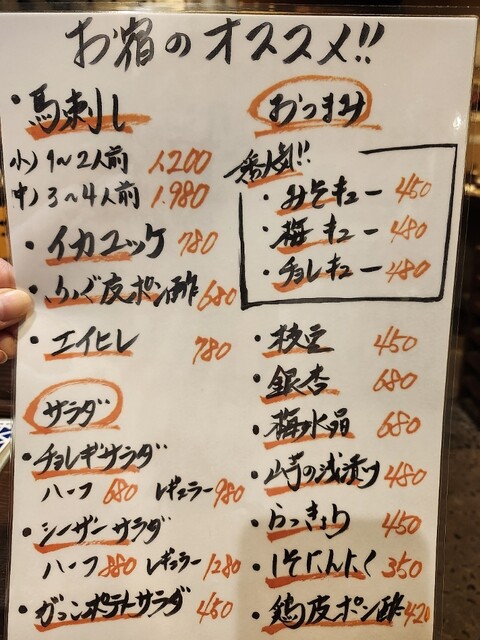 お宿のオススメ!!
・馬刺し
小)1〜2人前 1.200
中)3〜4人前 1.980
・イカユッケ 780
・ふぐ皮ポン酢 680
・エイヒレ 780
サラダ
・チョレギサラダ
ハーフ 680 レギュラー 980
・シーザーサラダ
ハーフ 880 レギュラー 1280
・がっこポテトサラダ 450
おつまみ
一番人気!!
・みそキュー 450
・梅キュー 480
・チョレキュー 480
・枝豆 450
・銀杏 680
・梅水晶 680
・山芋の浅漬け 480
・らっきょう 450
・しそにんにく 350
・鶏皮ポン酢 420